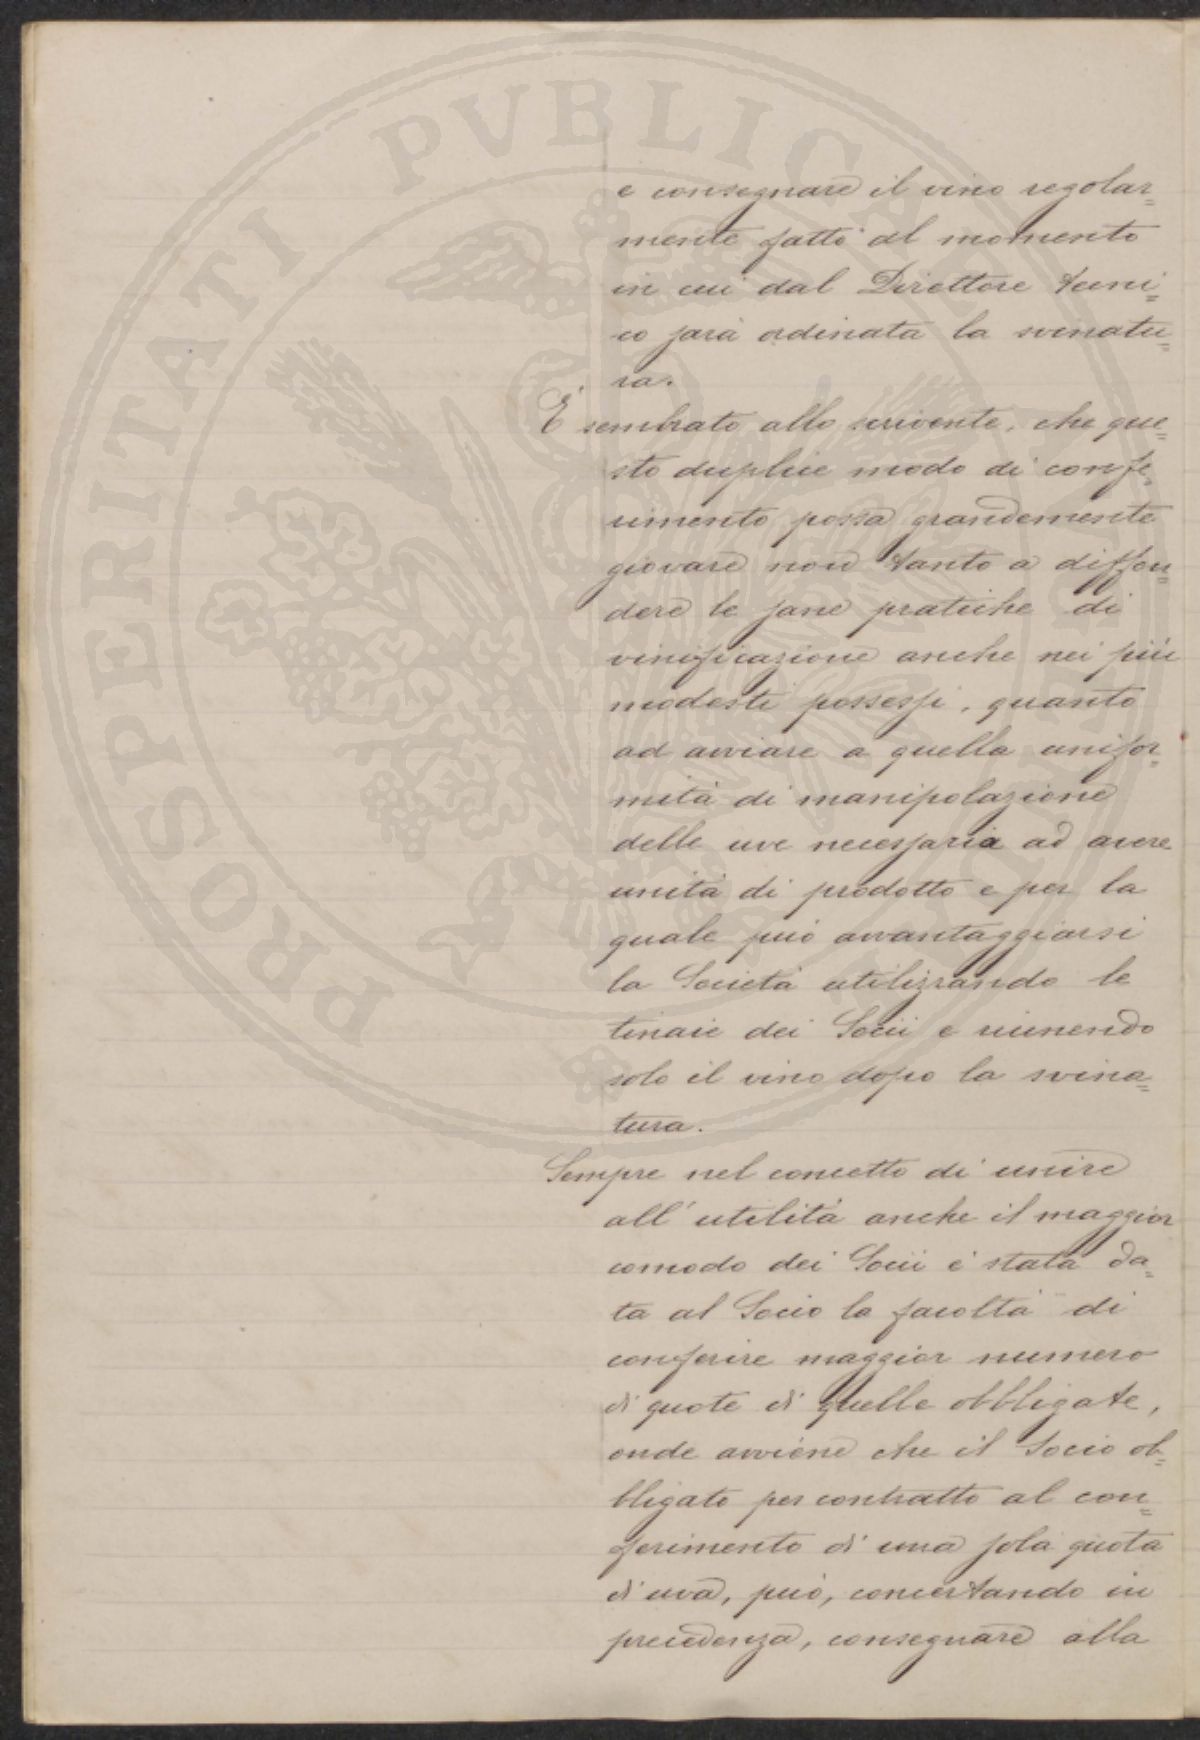 PROSPERITATI PVBLICAE
e consegnare il vino regolar=
mente fatto al momento
in cui dal Direttore tecni=
co sarà ordinata la svinatu=
ra.
È sembrato allo scrivente, che que=
sto duplice modo di confe=
rimento possa grandemente
giovare non tanto a diffon=
dere le sane pratiche di
vinificazione anche nei più
modesti possessi, quanto
ad avviare a quella unifor=
mità di manipolazione
delle uve necessaria ad avere
unità di prodotto e per la
quale può avvantaggiarsi
la Società utilizzando le
tinaie dei Socii e riunendo
solo il vino dopo la svina=
tura.
Sempre nel concetto di unire
all'utilità anche il maggior
comodo dei Socii è stata da=
ta al Socio la facoltà di
conferire maggior numero
di quote di quelle obbligate,
onde avviene che il Socio ob=
bligato per contratto al con=
ferimento di una sola quota
di uva, può, concertando in
precedenza, consegnare alla